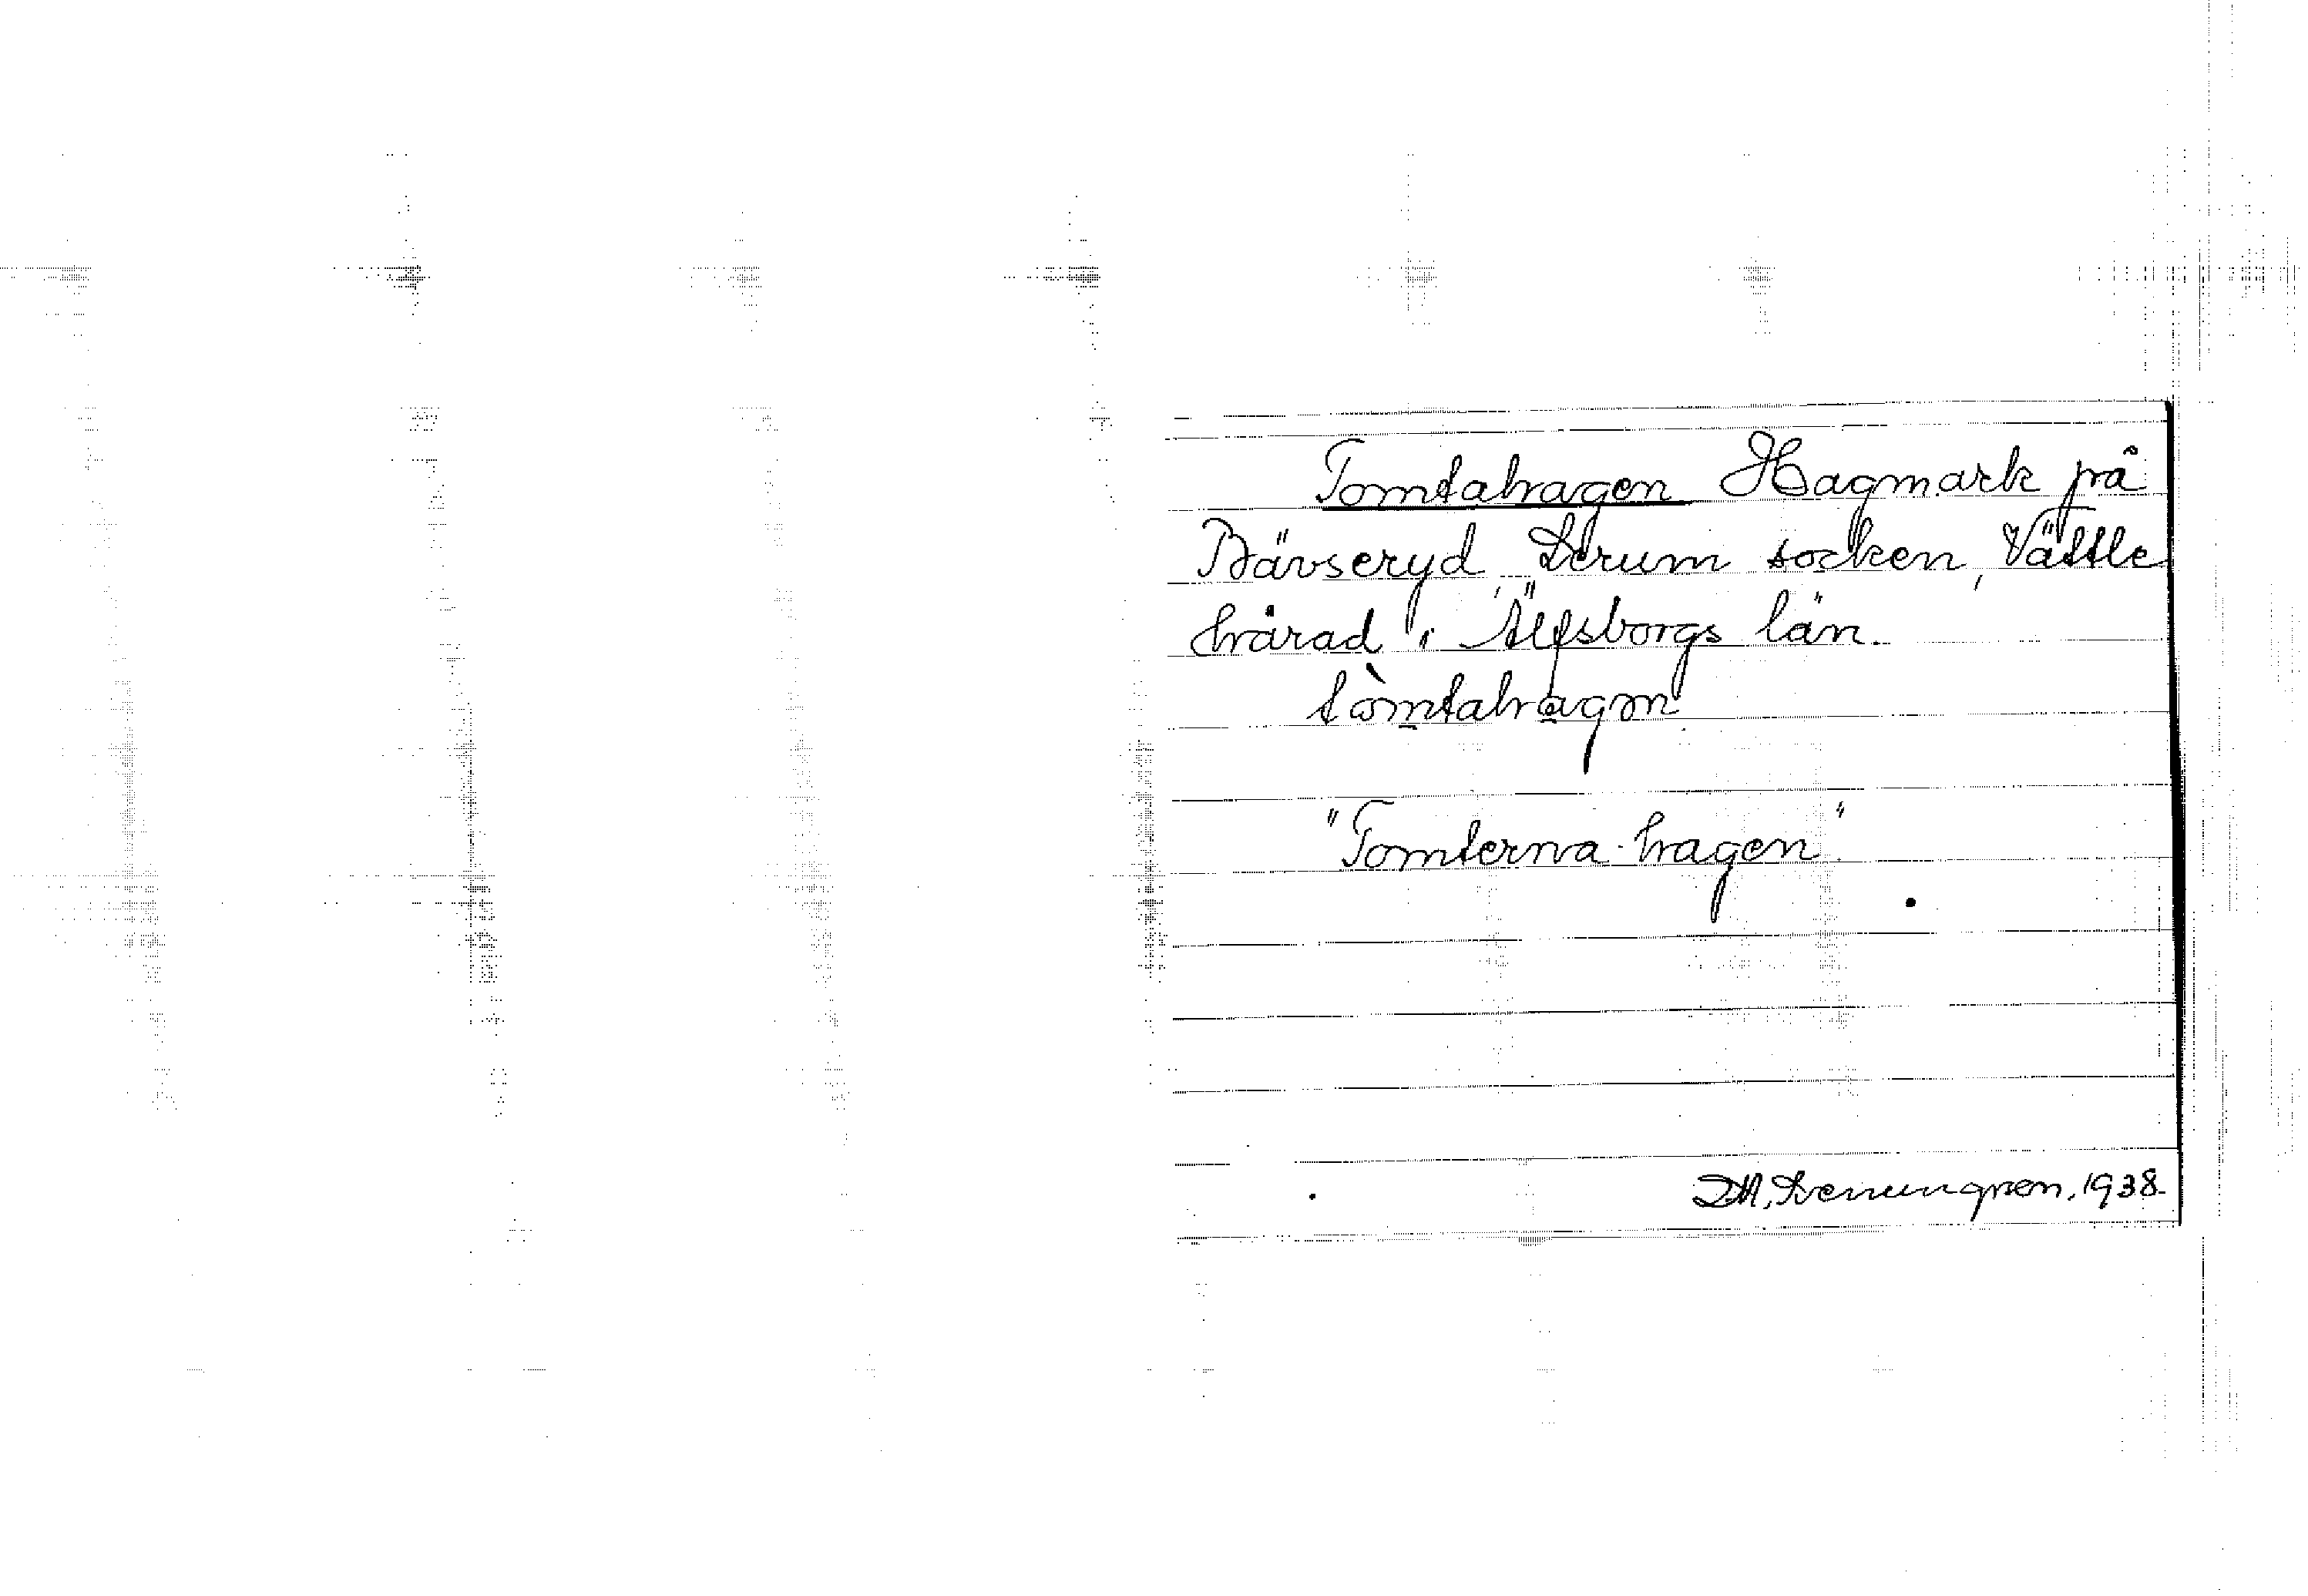 Tomtahagen Hagmark på
Bävseryd, Lerum socken, Vättle
härad i Älfsborgs län.
tòmtahagən
"Tomterna-hagen"
1938.